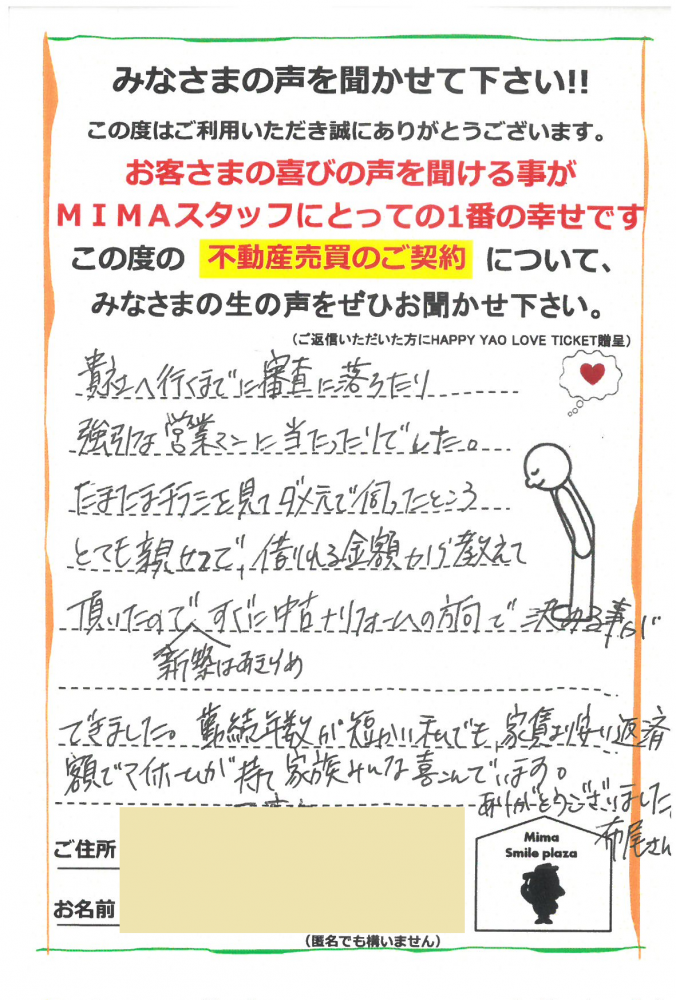 みなさまの声を聞かせて下さい!!
この度はご利用いただき誠にありがとうございます。
お客さまの喜びの声を聞ける事が
ＭＩＭＡスタッフにとっての1番の幸せです
この度の 不動産売買のご契約 について、
みなさまの生の声をぜひお聞かせ下さい。
（ご返信いただいた方にHAPPY YAO LOVE TICKET贈呈）
貴社へ行くまでに審査に落ちたり
強引な営業マンに当たったりでした。
たまたまチラシを見てダメ元で伺ったところ
とても親切で、借りれる金額から教えて
頂いたので すぐに中古+リフォームの方向で決める事が
新築はあきらめ
できました。勤続年数が短かい私でも、家賃より安い返済
額でマイホームが持て家族みんな喜こんでいます。
ありがとうございました。
布尾さん
ご住所
お名前
（匿名でも構いません）
Mima
Smile plaza